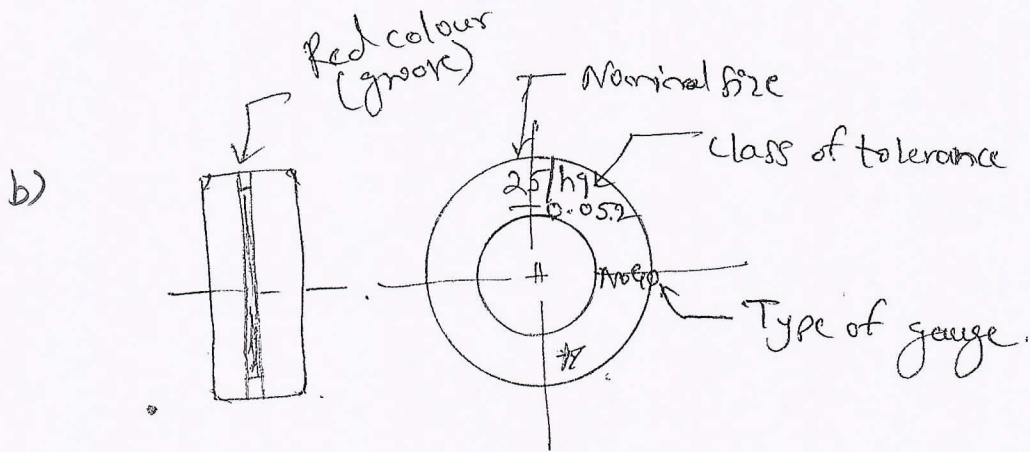 Red colour
(groove)
Nominal size
class of tolerance
b)
25/h9
-0.052
NoGo
Type of gauge.